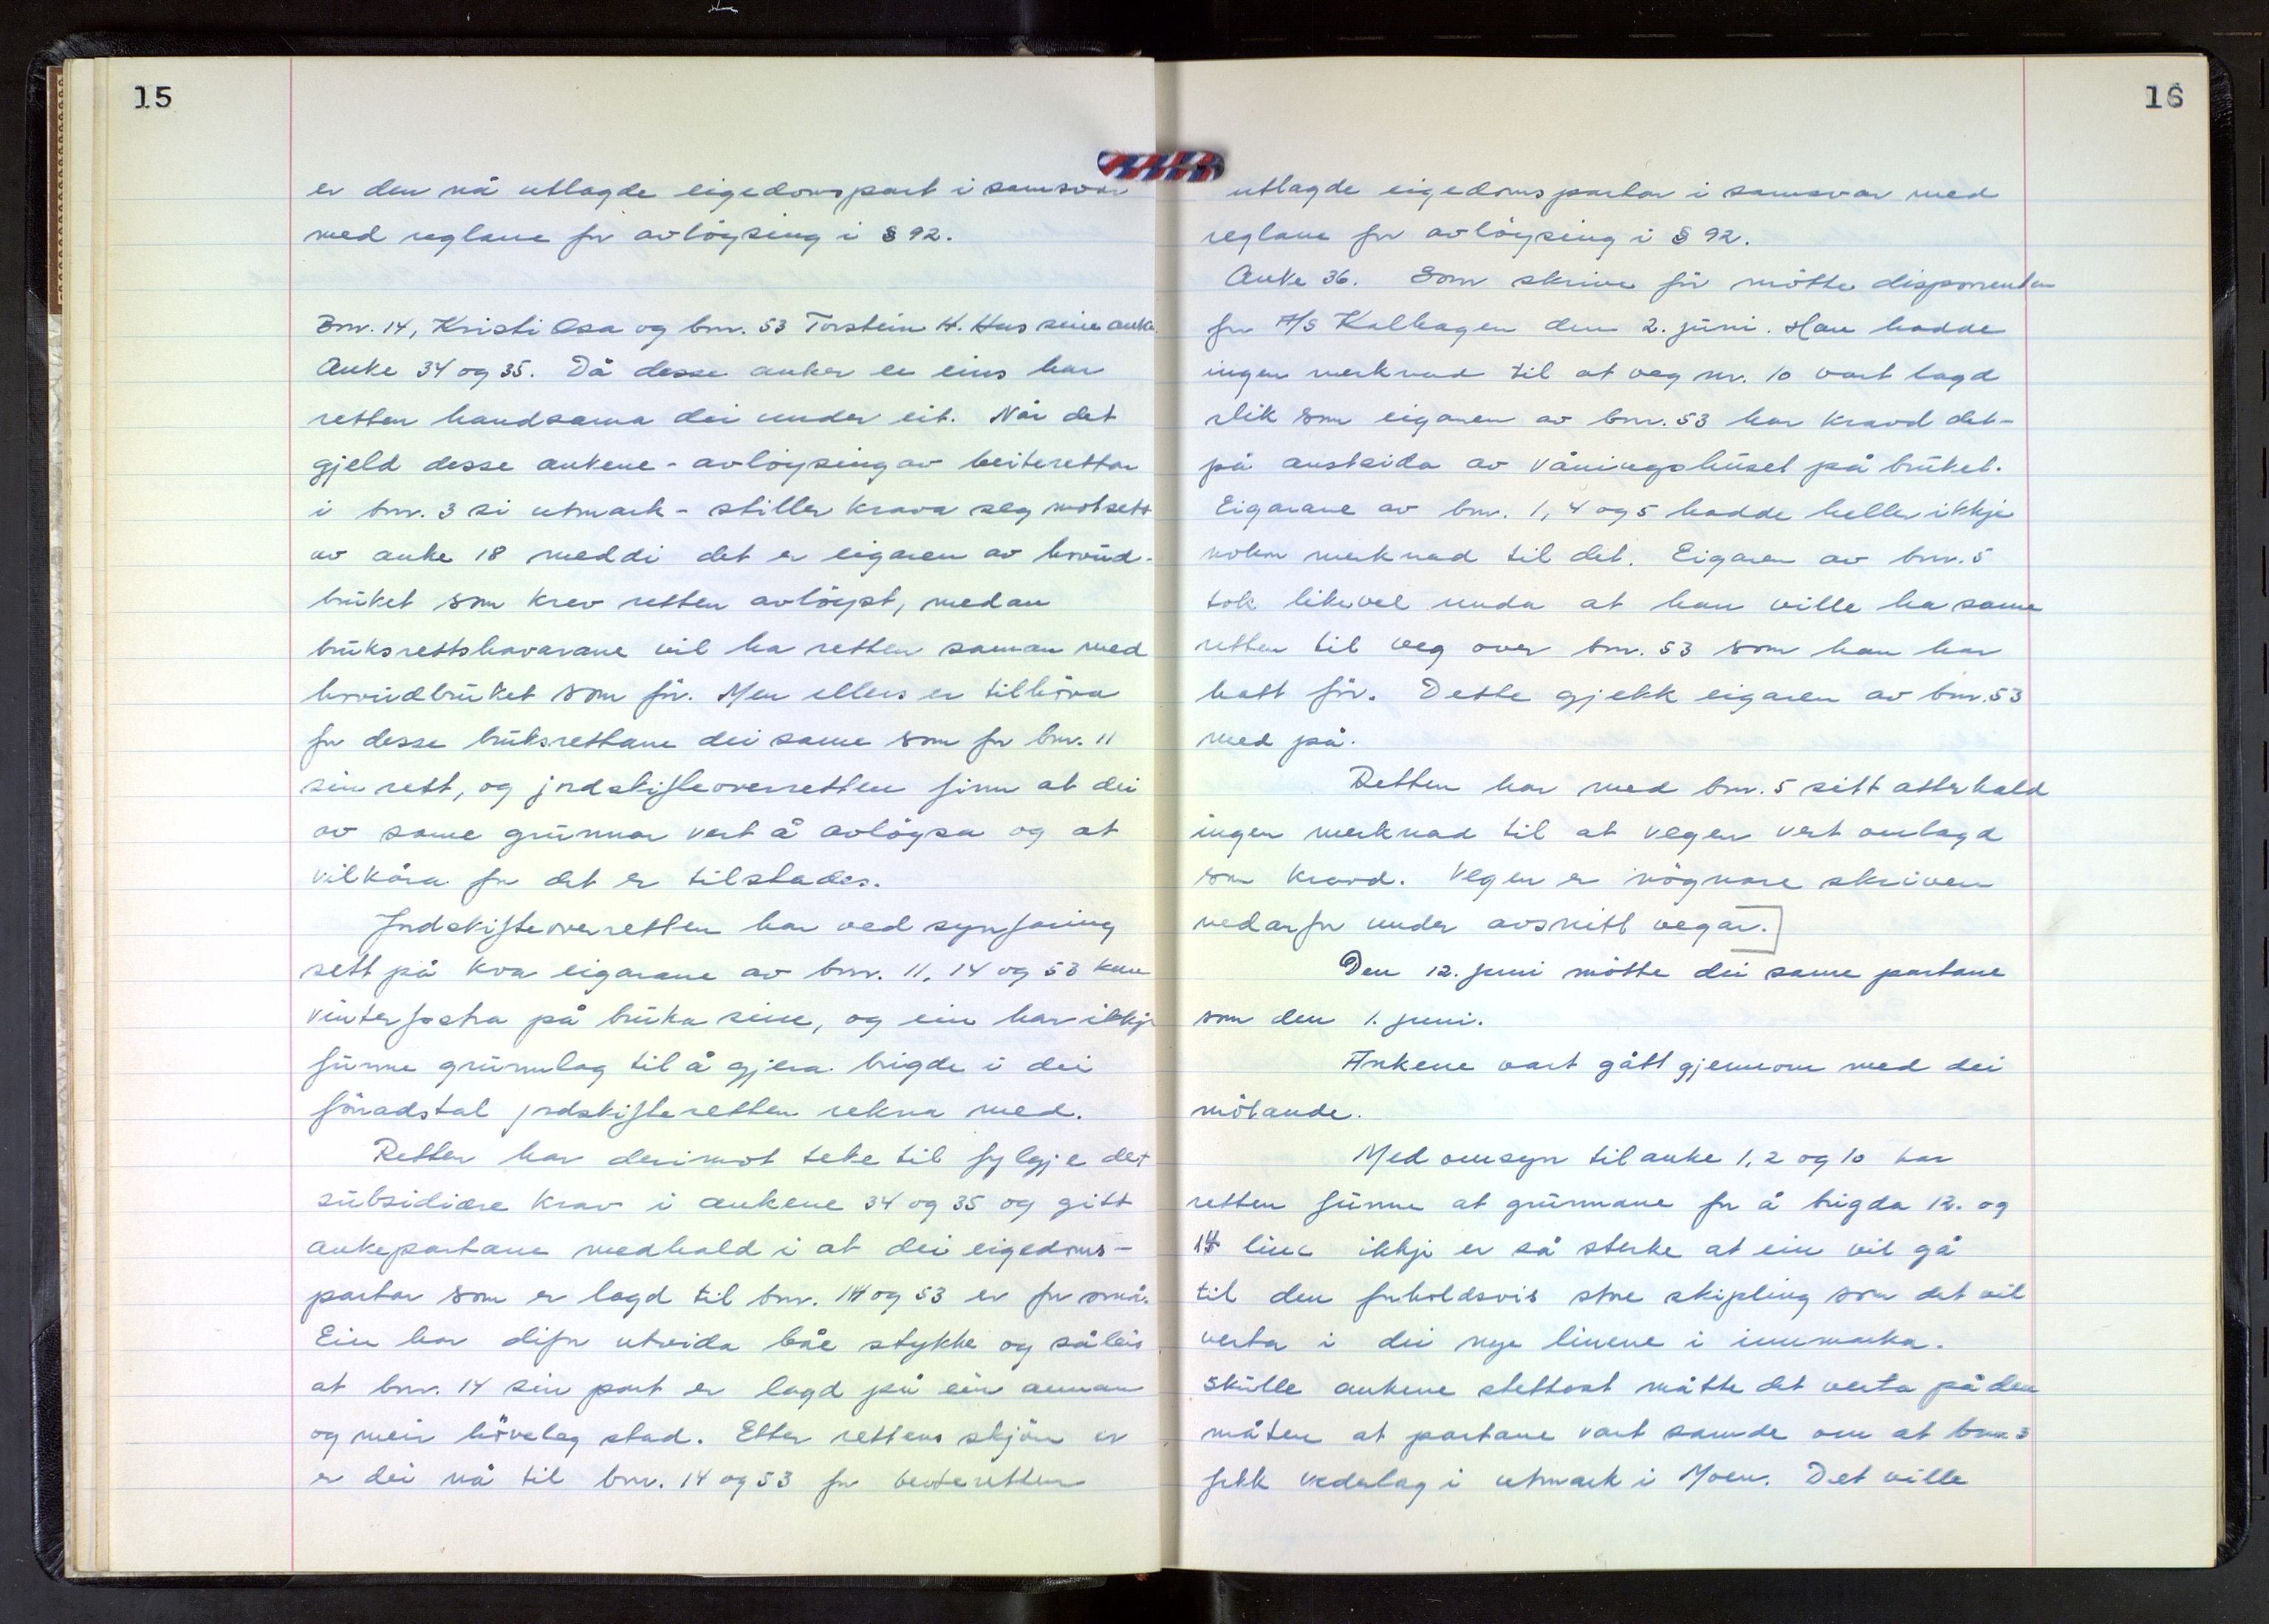 15
er den nå utlagde eigedomspart i samsvar
med reglane for avløysing i § 92.
Bnr. 14, Kristi Osa og bnr. 53 Torstein H. Hus sine anke.
Anke 34 og 35. Då desse anker er eins har
retten handsama dei under eit. Når det
gjeld desse ankene - avløysing av beiterettar
i bnr. 3 si utmark - stiller krava seg motsett
av anke 18 meddi det er eigaren av hovud-
bruket som krev retten avløyst, medan
bruksrettshavarane vil ha retten saman med
hovudbruket som før. Men ellers er tilhøva
for desse bruksrettane dei same som for bnr. 11
sin rett, og jordskifteoverretten finn at dei
av same grunnar vert å avløysa og at
vilkåra for det er tilstades.
Jordskifteoverretten har ved synfaring
sett på kva eigarane av bnr. 11, 14 og 53 kan
vinterfostra på bruka sine, og ein har ikkje
funne grunnlag til å gjera brigde i dei
fönadstal jordskifteretten rekna med.
Retten har derimot teke til fylgje det
subsidiære krav i ankene 34 og 35 og gitt
ankepartane medhald i at dei eigedoms-
partar som er lagd til bnr. 14 og 53 er for små.
Ein har difor utvida båe stykke og såleis
at bnr. 14 sin part er lagd på ein annan
og meir høveleg stad. Etter rettens skjön er
er dei nå til bnr. 14 og 53 for beiteretten
16
utlagde eigedomspartar i samsvar med
reglane for avløysing i § 92.
Anke 36. Som skrive før møtte disponenten
for A/S Kalhagen den 2. juni. Han hadde
ingen merknad til at veg nr. 10 vart lagd
slik som eigaren av bnr. 53 har kravd det -
på austsida av våningshuset på bruket.
Eigarane av bnr. 1, 4 og 5 hadde heller ikkje
nokon merknad til det. Eigaren av bnr. 5
tok likevel unda at han ville ha same
retten til veg over bnr. 53 som han har
hatt før. Dette gjekk eigaren av bnr. 53
med på.
Retten har med bnr. 5 sitt atterhald
ingen merknad til at vegen vert omlagd
som kravd. Vegen er nögnare skriven
nedanfor under avsnitt vegar.
Den 12. juni møtte dei same partane
som den 1. juni.
Ankene vart gått gjennom med dei
møtande.
Med omsyn til anke 1, 2 og 10 har
retten funne at grunnane for å brigda 12. og
14 line ikkje er så sterke at ein vil gå
til den forholdsvis store skipling som det vil
verta i dei nye linene i innmarka.
Skulle ankene stettast måtte det verta på den
måten at partane vart samde om at bnr. 3
fekk vederlag i utmark i Moen. Det ville